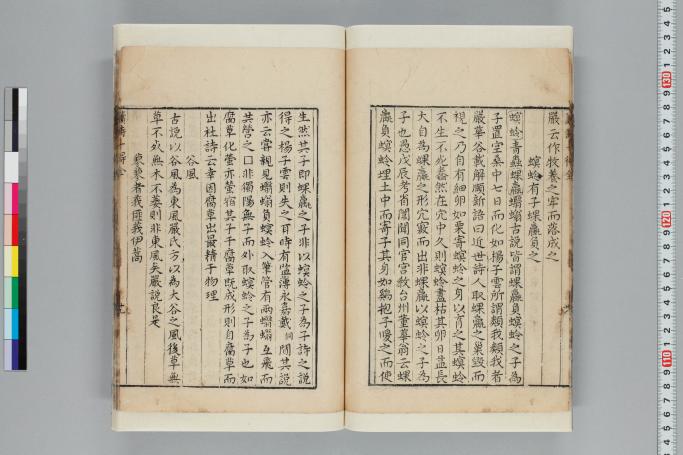 嚴云作牧養之牢而落成之
螟蛉有子蜾蠃負之
螟蛉青蟲蜾蠃蠮螉古說皆謂蜾蠃負螟蛉之子為
子置空桑中七日而化如楊子雲所謂類我類我者
嚴華谷載解頤新語曰近世詩人取蜾蠃之巢毀而
視之乃自有細卵如粟寄螟蛉之身以育之其螟蛉
不生不死蠢然在穴中久則螟蛉盡枯其卵日益長
大自為蜾蠃之形穴竅而出非蜾蠃以螟蛉之子為
子也愚戊辰考省闈聞同官宮教台州董華翁云蜾
蠃負螟蛉埋土中而寄子其身如鷄抱子暖之而使
生然其子即蜾蠃之子非以螟蛉之子為子詩之說
得之楊子雲則失之耳時有監簿永嘉戴侗聞其說
亦云嘗親見蠮螉負螟蛉入筆管有兩蠮螉互飛而
共營之口非獨陽無子而外取螟蛉之子為子也如
腐草化螢亦螢宿其子于腐草既成形則自腐草而
出杜詩云幸因腐草出最精于物理
谷風
古說以谷風為東風嚴氏方以為大谷之風後章無
草不死無木不萎則非東風矣嚴說良是
蓼蓼者莪匪莪伊蒿